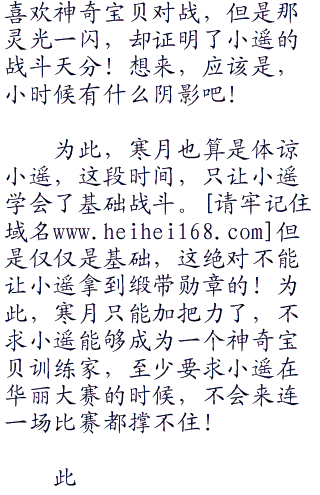 喜欢神奇宝贝对战，但是那
灵光一闪，却证明了小遥的
战斗天分！想来，应该是，
小时候有什么阴影吧！
为此，寒月也算是体谅
小遥，这段时间，只让小遥
学会了基础战斗。[请牢记住
域名www.heihei168.com]但
是仅仅是基础，这绝对不能
让小遥拿到缎带勋章的！为
此，寒月只能加把力了，不
求小遥能够成为一个神奇宝
贝训练家，至少要求小遥在
华丽大赛的时候，不会来连
一场比赛都撑不住！
此